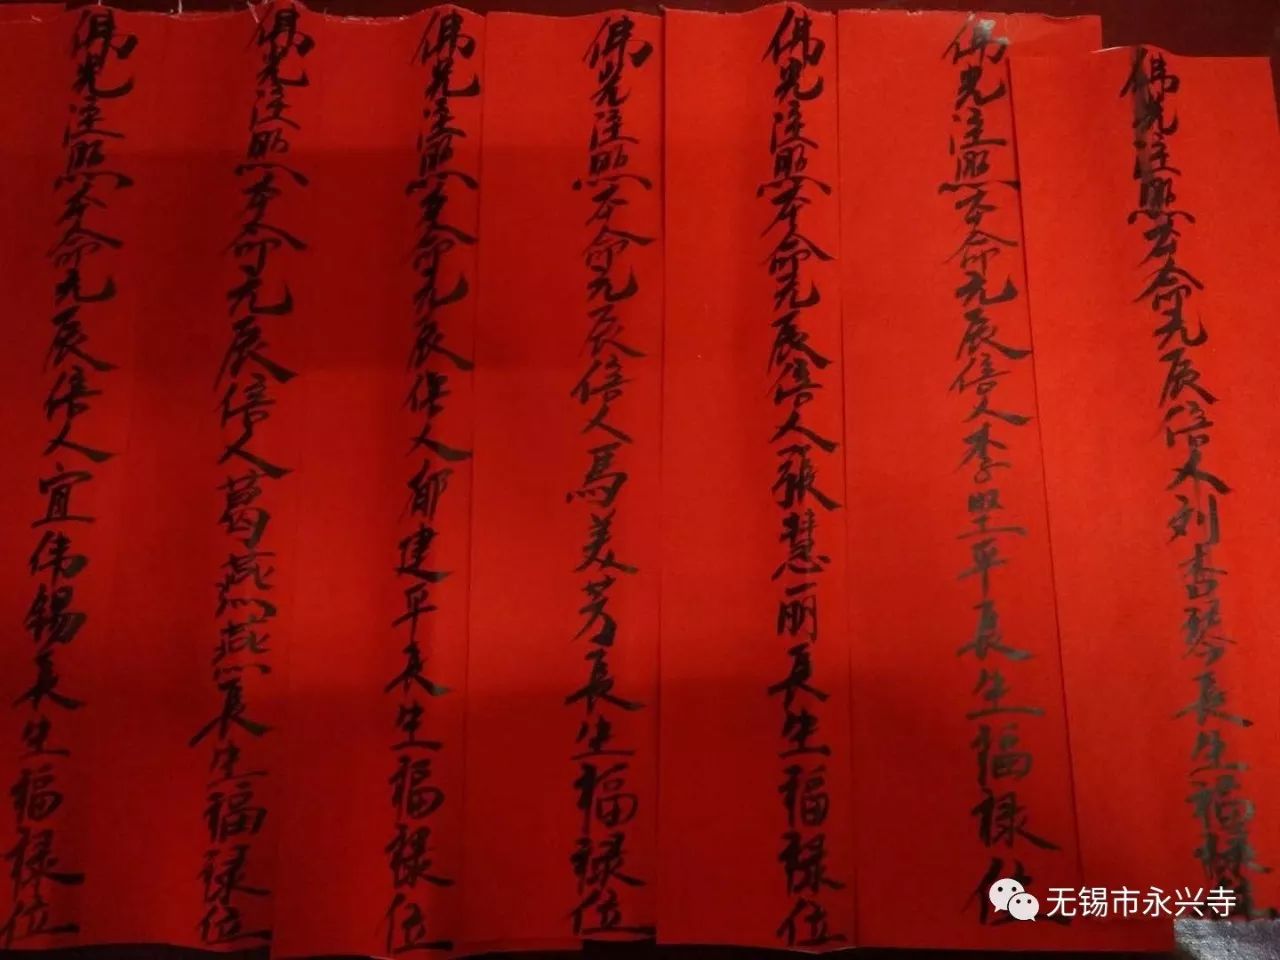 佛光注照本命元辰信人刘杏琴長生福祿位
佛光注照本命元辰信人李堅平長生福祿位
佛光注照本命元辰信人張慧丽長生福祿位
佛光注照本命元辰信人馬美芳長生福祿位
佛光注照本命元辰信人郁建平長生福祿位
佛光注照本命元辰信人葛燕燕長生福祿位
佛光注照本命元辰信人宜伟锡長生福祿位
无锡市永兴寺